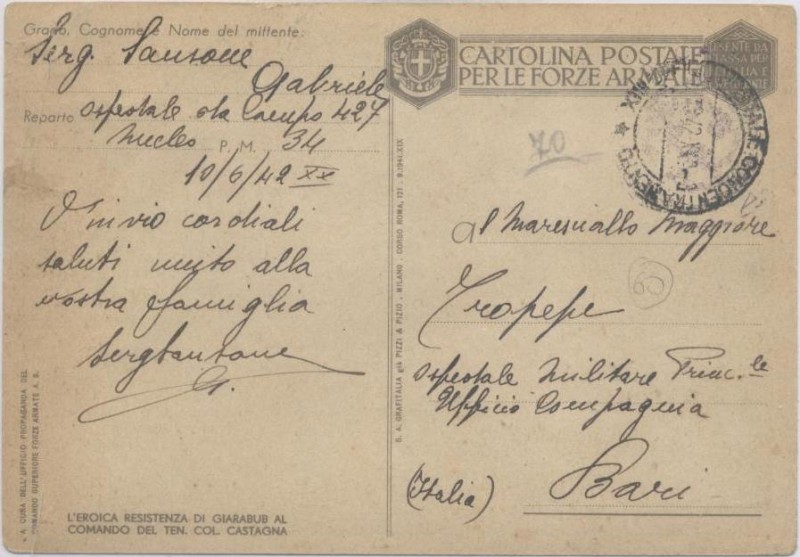 Grado, Cognome e Nome del mittente:
Serg. Sansone
Gabriele
Reparto Ospedale da Campo 427
Nucleo P. M. 34
10/6/42 XX
V'invio cordiali
saluti unito alla
vostra famiglia
Serg Sansone
G.
A CURA DELL'UFFICIO PROPAGANDA DEL
COMANDO SUPERIORE FORZE ARMATE A. S.
L'EROICA RESISTENZA DI GIARABUB AL
COMANDO DEL TEN. COL. CASTAGNA
S. A. GRAFITALIA già PIZZI & PIZIO - MILANO - CORSO ROMA, 121 - 9.1941.XIX
CARTOLINA POSTALE
PER LE FORZE ARMATE
ESENTE DA
TASSA PER
L'ITALIA E
CONCENTRAMENTO
70
al Maresciallo Maggiore
60
Tropepe
Ospedale Militare Princ.le
Ufficio Compagnia
(Italia) Bari